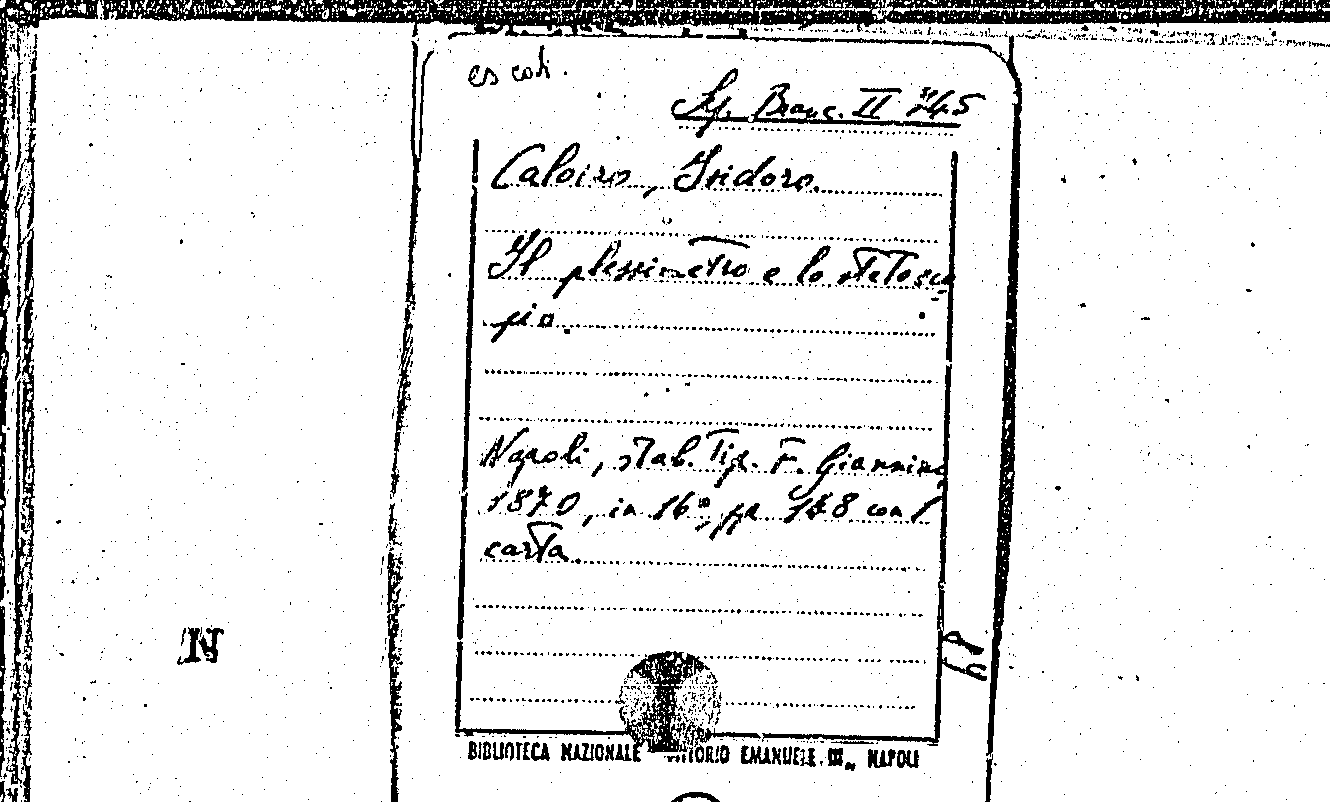 es coti.
Sp. Branc. II 745
Caloiro, Isidoro.
Il plessimetro e lo stetosco
pio.
Napoli, stab. Tip. F. Giannini
1870, in 16°, pp. 148 con 1
carta.
N
BIBLIOTECA NAZIONALE VITTORIO EMANUELE III„ NAPOLI